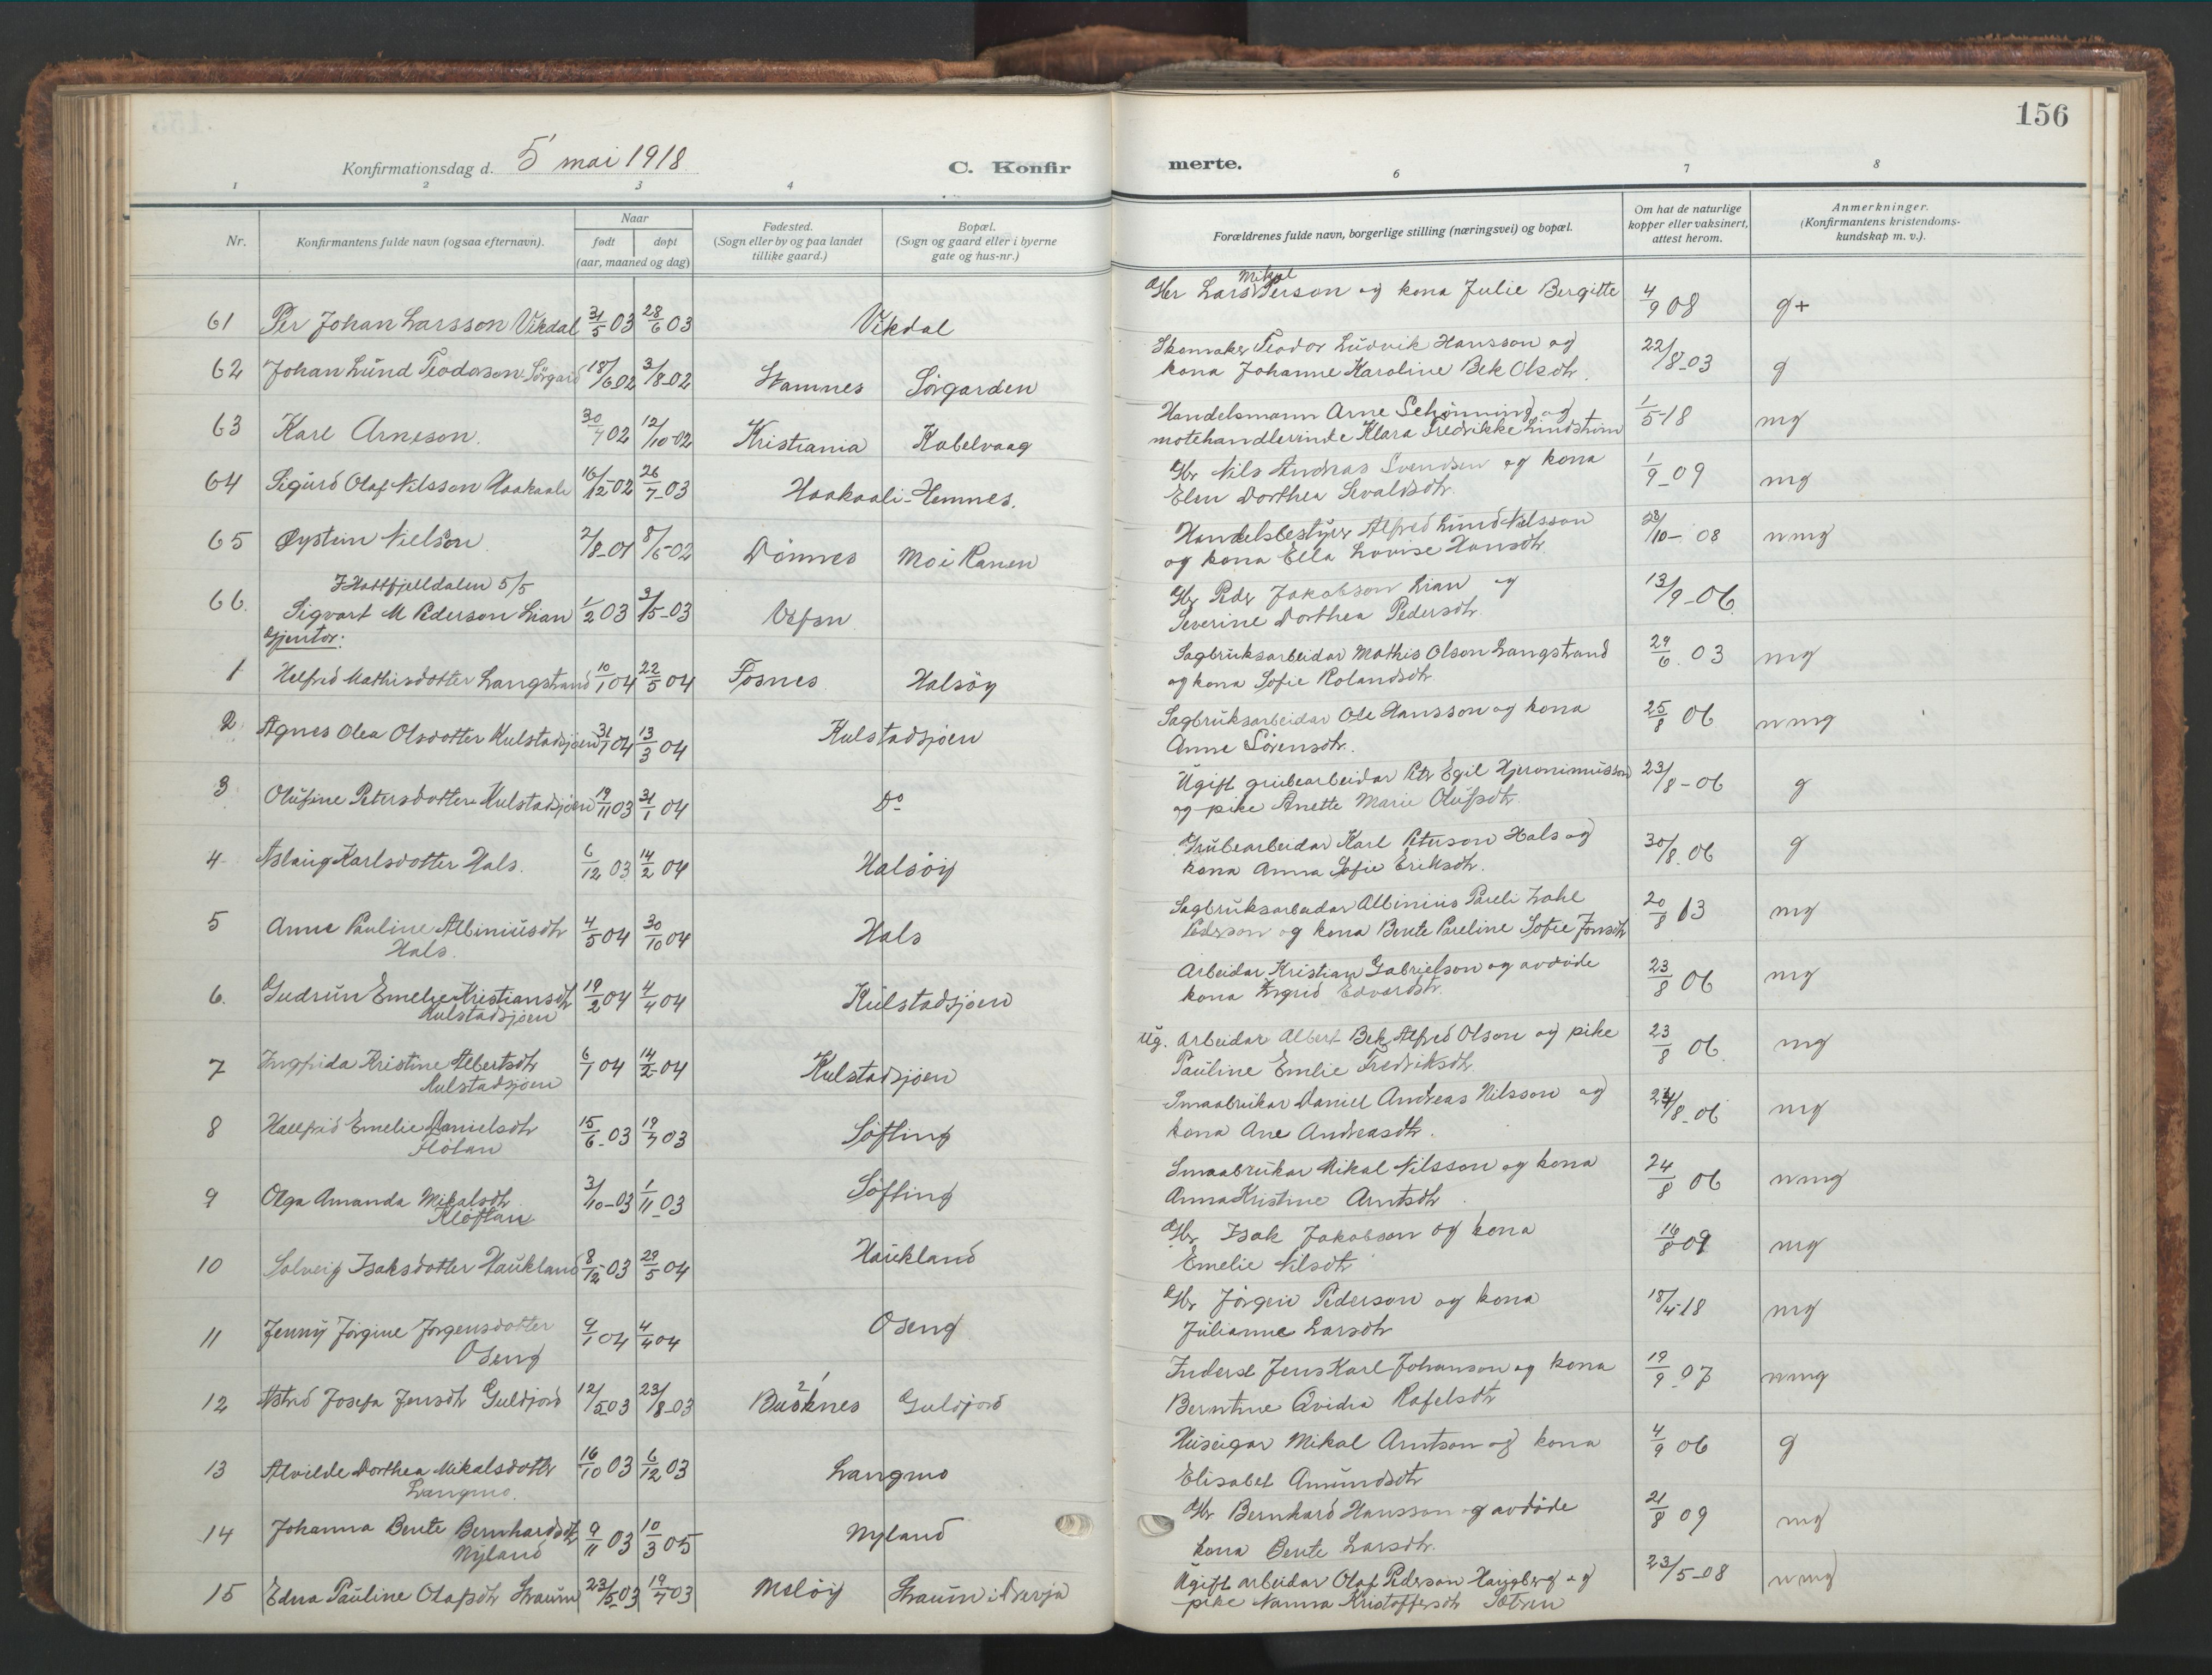 156
Konfirmationsdag d. 5' mai 1918
C. Konfir merte.
1 2 3 4 6 7 8
Nr.
Konfirmantens fulde navn (ogsaa efternavn).
Naar
født døpt
(aar, maaned og dag)
Fødested.
(Sogn eller by og paa landet
tillike gaard.)
Bopæl.
(Sogn og gaard eller i byerne
gate og hus-nr.)
Forældrenes fulde navn, borgerlige stilling (næringsvei) og bopæl.
Om hat de naturlige
kopper eller vaksinert,
attest herom.
Anmerkninger.
(Konfirmantens kristendoms-
kundskap m. v.).
61 Per Johan Larsson Vikdal 31/5 03 28/6 03 Vikdal
Gbr Lars Mikal Person og kona Julie Bergitte 4/9 08 g+
62 Johan Lund Teodorson Sörgard 18/6 02 3/8-02 Stamnes Sörgarden
Skomaker Teodor Ludvik Hansson og
kona Johanne Karoline Bek Olsdtr. 22/8-03 g
63 Karl Arneson. 30/7 02 12/10-02 Kristiania Kabelvaag
Handelsmann Arne Schönning og
motehandlerinde Klara Fredrikke Lindström 1/5-18 mg
64 Sigurd Olaf Nilsson Haakaali 16/12-02 26/7-03 Haakaali-Hemnes.
Gbr Nils Andreas Svendsen og kona
Elen Dorthea Sivaldsdtr. 1/9-09 mg
65 Øystein Nielson 2/8-01 8/6-02 Dönnes Mo i Ranen
Handelsbestyrer Alfred Lund Nilsson
og kona Ella Lovise Hansdtr 28/10-08 nmg
I Hattfjelldalen 5/5
66. Sigvart M Pederson Lian 1/2 03 3/5-03 Vefsn
Gbr Peder Jakobson Lian og
Severine Dorthea Pedersdtr. 13/9-06.
Gjentor:
1 Helfrid Mathisdotter Langstrand 10/1 04 22/5 04 Fosnes Halsöy
Sagbruksarbeidar Mathis Olson Langstrand
og kona Sofie Rolandsdtr. 29/6. 03 mg
2 Agnes Olea Olsdotter Kulstadsjoen 31/1 04 13/3 04 Kulstadsjoen
Sagbruksarbeidar Ole Hansson og kona
Anne Sörensdtr. 25/8 06 nmg
3 Olufine Petersdotter Kulstadsjoen 19/11 03 31/1 04 Do
Ugift grubearbeidar Petr Egil Hjeronimusson
og pike Anette Marie Olufsdtr. 23/8-06 g
4 Aslaug Karlsdotter Hals. 6/12 03 14/2 04 Halsöy
Grubearbeidar Karl Peterson Hals og
kona Anna Sofie Eriksdtr. 30/8. 06 g
5 Anne Pauline Albiniusdtr 4/5 04 30/10 04 Hals
Hals.
Sagbruksarbeidar Albinius Pareli Zahl
Pederson og kona Bente Pareline Sofie Jonsdtr 20/8 13 mg
6. Gudrun Emelie Kristiansdtr 19/2 04 4/4 04 Kulstadsjoen
Kulstadsjoen
Arbeidar Kristian Gabrielson og avdöde
kona Ingrid Edvardsdtr. 23/8 06 mg
7 Ingfrida Kristine Albertsdtr 6/1 04 14/2-04 Kulstadsjoen
Kulstadsjoen
Ug. Arbeidar Albert Bek Alfred Olson og pike
Pauline Emlie Fredriksdtr. 23/8 06 mg
8 Hallfrid Emelie Danielsdtr 15/6-03 19/7 03 Söfting
Flötan
Smaabrukar Daniel Andreas Nilsson og
kona Ane Andreasdtr. 24/8-06 mg
9 Olga Amanda Mikalsdtr 3/10-03 1/11-03 Söfting
Klöftan
Smaabrukar Mikal Nilsson og kona
Anna Kristine Arntsdtr. 24/8 06 nmg
10 Solveig Isaksdotter Haukland 8/12-03 29/5 04 Haukland
Gbr. Isak Jakobson og kona
Emelie Nilsdtr 16/8 09 mg
11 Jenny Jörgine Jörgensdotter 9/1 04 4/4 04 Oseng
Oseng
Gbr Jörgen Pederson og kona
Julianne Larsdtr 18/4-18 mg
12 Astrid Josefa Jensdtr Guldjord 12/5-03 23/8-03 Busknes Guldjord
Inderst Jens Karl Johanson og kona
Berntine Qvidia Rafelsdtr 19/9 07 nmg
13 Alvilde Dorthea Mikalsdotter 16/10 03 6/12 03 Langmo
Langmo.
Huseigar Mikal Arntson og kona
Elisabet Amundsdtr 4/9 06 g
14 Johanna Bente Bernhardsdtr 9/11 03 10/3 05 Nyland
Nyland
Gbr Bernhard Hansson og avdöde
kona Bente Larsdtr. 21/8 09 mg
15 Edna Pauline Olafsdtr Straum 23/5-03 19/7 03 Meløy Straum i Drevja
Ugift arbeidar Olaf Pederson Haugberg og
pike Nanna Kristoffersdtr Sætren 23/5-08 nmg